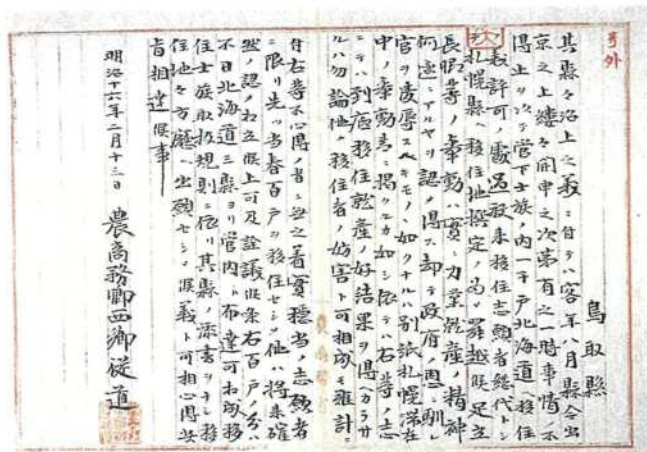 号外
鳥取縣
其縣々治上之義ニ付テハ客年八月縣令出
京之上縷々開申之次第有之一時事情ノ不
得止ヨリ管下士族ノ内一千戸北海道ヘ移住
之義許可ノ處過般来移住志願者總代トシ
テ札幌縣ヘ移住地撰定ノ為メ罷越候足立
長郷等ノ挙動ハ實ニ力業就産ノ精神
何邊ニアルヤヲ認メ得ス却テ政府ノ恩ニ馴レ
官ヲ凌辱スヘキモノヽ如クナルハ別紙札幌滞在
中ノ挙動書ニ掲クルカ如シ依テハ右等ノ志
ニテハ到底移住就産ノ好結果ヲ得ヘカラサ
ルハ勿論他ノ移住者ノ妨害ト可相成モ難計ニ
付右等不心得ノ者ニ無之着實穏当ノ志願者
ニ限リ先ツ当春百戸ヲ移住セシメ他ハ将来確
然ノ認メ相立候上可及詮議候条右百戸ノ分ハ
不日北海道三縣ヨリ管内ヘ布達可相成移
住士族取扱規則ニ依リ其縣ノ添書ヲナシ移
住地々方廳ヘ出願セシメ候義ト可相心得此
旨相達候事
明治十六年二月十三日
農商務卿西郷従道